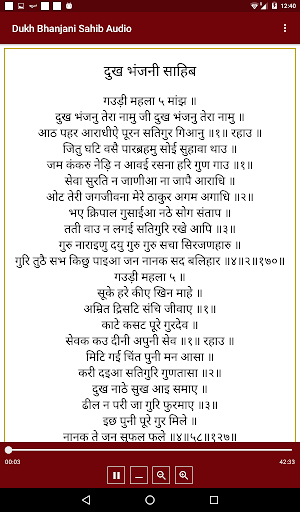 12:40
Dukh Bhanjani Sahib Audio
दुख भंजनी साहिब
गउड़ी महला ५ मांझ ॥
दुख भंजनु तेरा नामु जी दुख भंजनु तेरा नामु ॥
आठ पहर आराधीऐ पूरन सतिगुर गिआनु ॥१॥ रहाउ ॥
जितु घटि वसै पारब्रहमु सोई सुहावा थाउ ॥
जम कंकरु नेड़ि न आवई रसना हरि गुण गाउ ॥१॥
सेवा सुरति न जाणीआ ना जापै आराधि ॥
ओट तेरी जगजीवना मेरे ठाकुर अगम अगाधि ॥२॥
भए क्रिपाल गुसाईआ नठे सोग संताप ॥
तती वाउ न लगई सतिगुरि रखे आपि ॥३॥
गुरु नाराइणु दयु गुरु गुरु सचा सिरजणहारु ॥
गुरि तुठै सभ किछु पाइआ जन नानक सद बलिहार ॥४॥२॥१७०॥
गउड़ी महला ५ ॥
सूके हरे कीए खिन माहे ॥
अम्रित द्रिसटि संचि जीवाए ॥१॥
काटे कसट पूरे गुरदेव ॥
सेवक कउ दीनी अपुनी सेव ॥१॥ रहाउ ॥
मिटि गई चिंत पुनी मन आसा ॥
करी दइआ सतिगुरि गुणतासा ॥२॥
दुख नाठे सुख आइ समाए ॥
ढील न परी जा गुरि फुरमाए ॥३॥
इछ पुनी पूरे गुर मिले ॥
नानक ते जन सुफल फले ॥४॥५८॥१२७॥
00:03
42:33